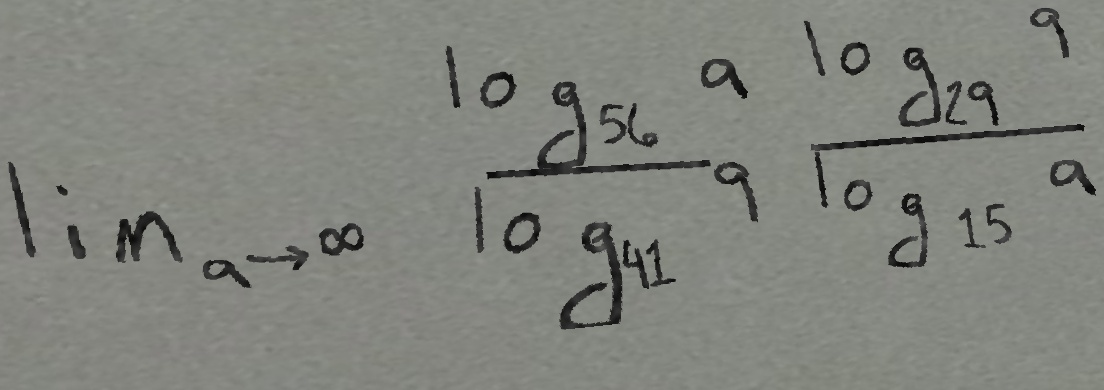 lim_{a→∞} \frac{log_{56} a}{log_{41} 9} \frac{log_{29} 9}{log_{15} a}